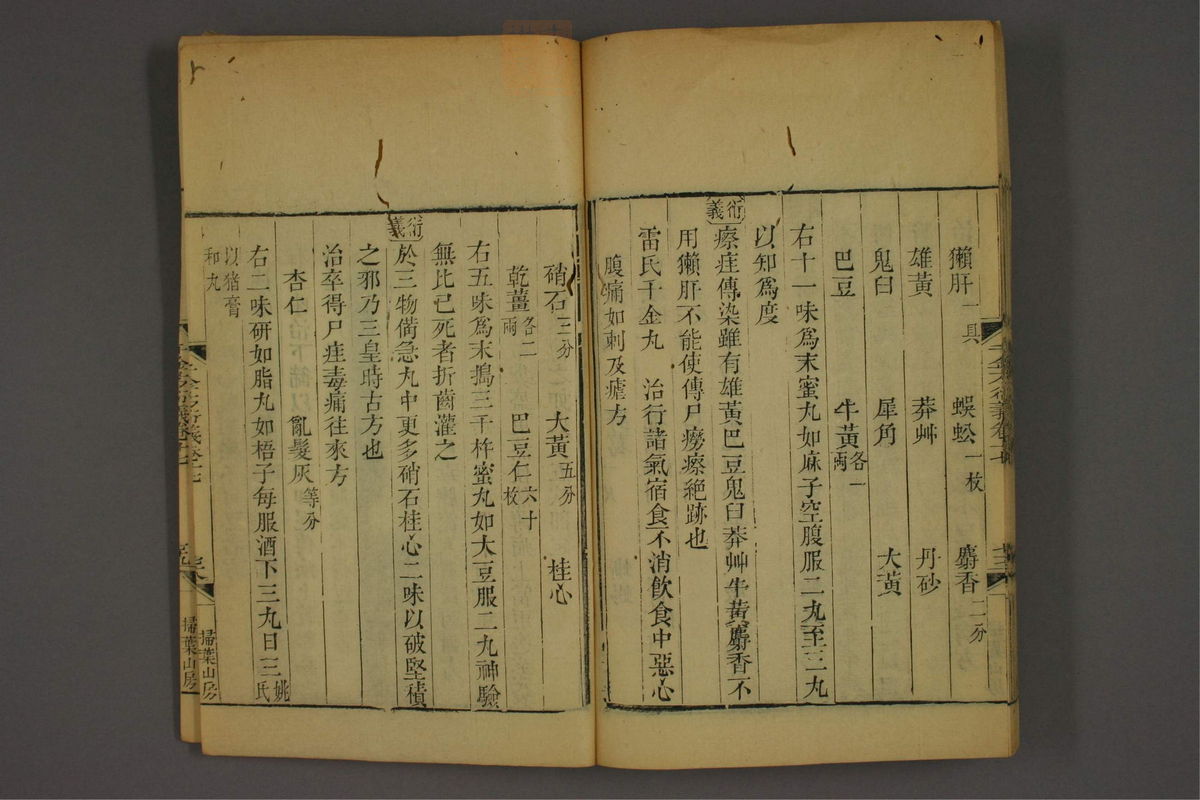 獺肝一具 蜈蚣一枚 麝香二分
雄黃 莽艸 丹砂
鬼臼 犀角 大黃
巴豆 牛黃各一兩
右十一味爲末蜜丸如麻子空腹服二丸至三丸
以知爲度
衍義 瘵疰傳染雖有雄黃巴豆鬼臼莽艸牛黃麝香不
用獺肝不能使傳尸癆瘵絕跡也
雷氏千金丸 治行諸氣宿食不消飲食中惡心
腹痛如刺及瘧方
硝石三分 大黃五分 桂心
乾薑各二兩 巴豆仁六十枚
右五味爲末搗三千杵蜜丸如大豆服二丸神驗
無比已死者折齒灌之
衍義 於三物備急丸中更多硝石桂心二味以破堅積
之邪乃三皇時古方也
治卒得尸疰毒痛往來方
杏仁 亂髮灰等分
右二味研如脂丸如梧子每服酒下三丸日三姚氏
以猪膏和丸
掃葉山房
掃葉山房